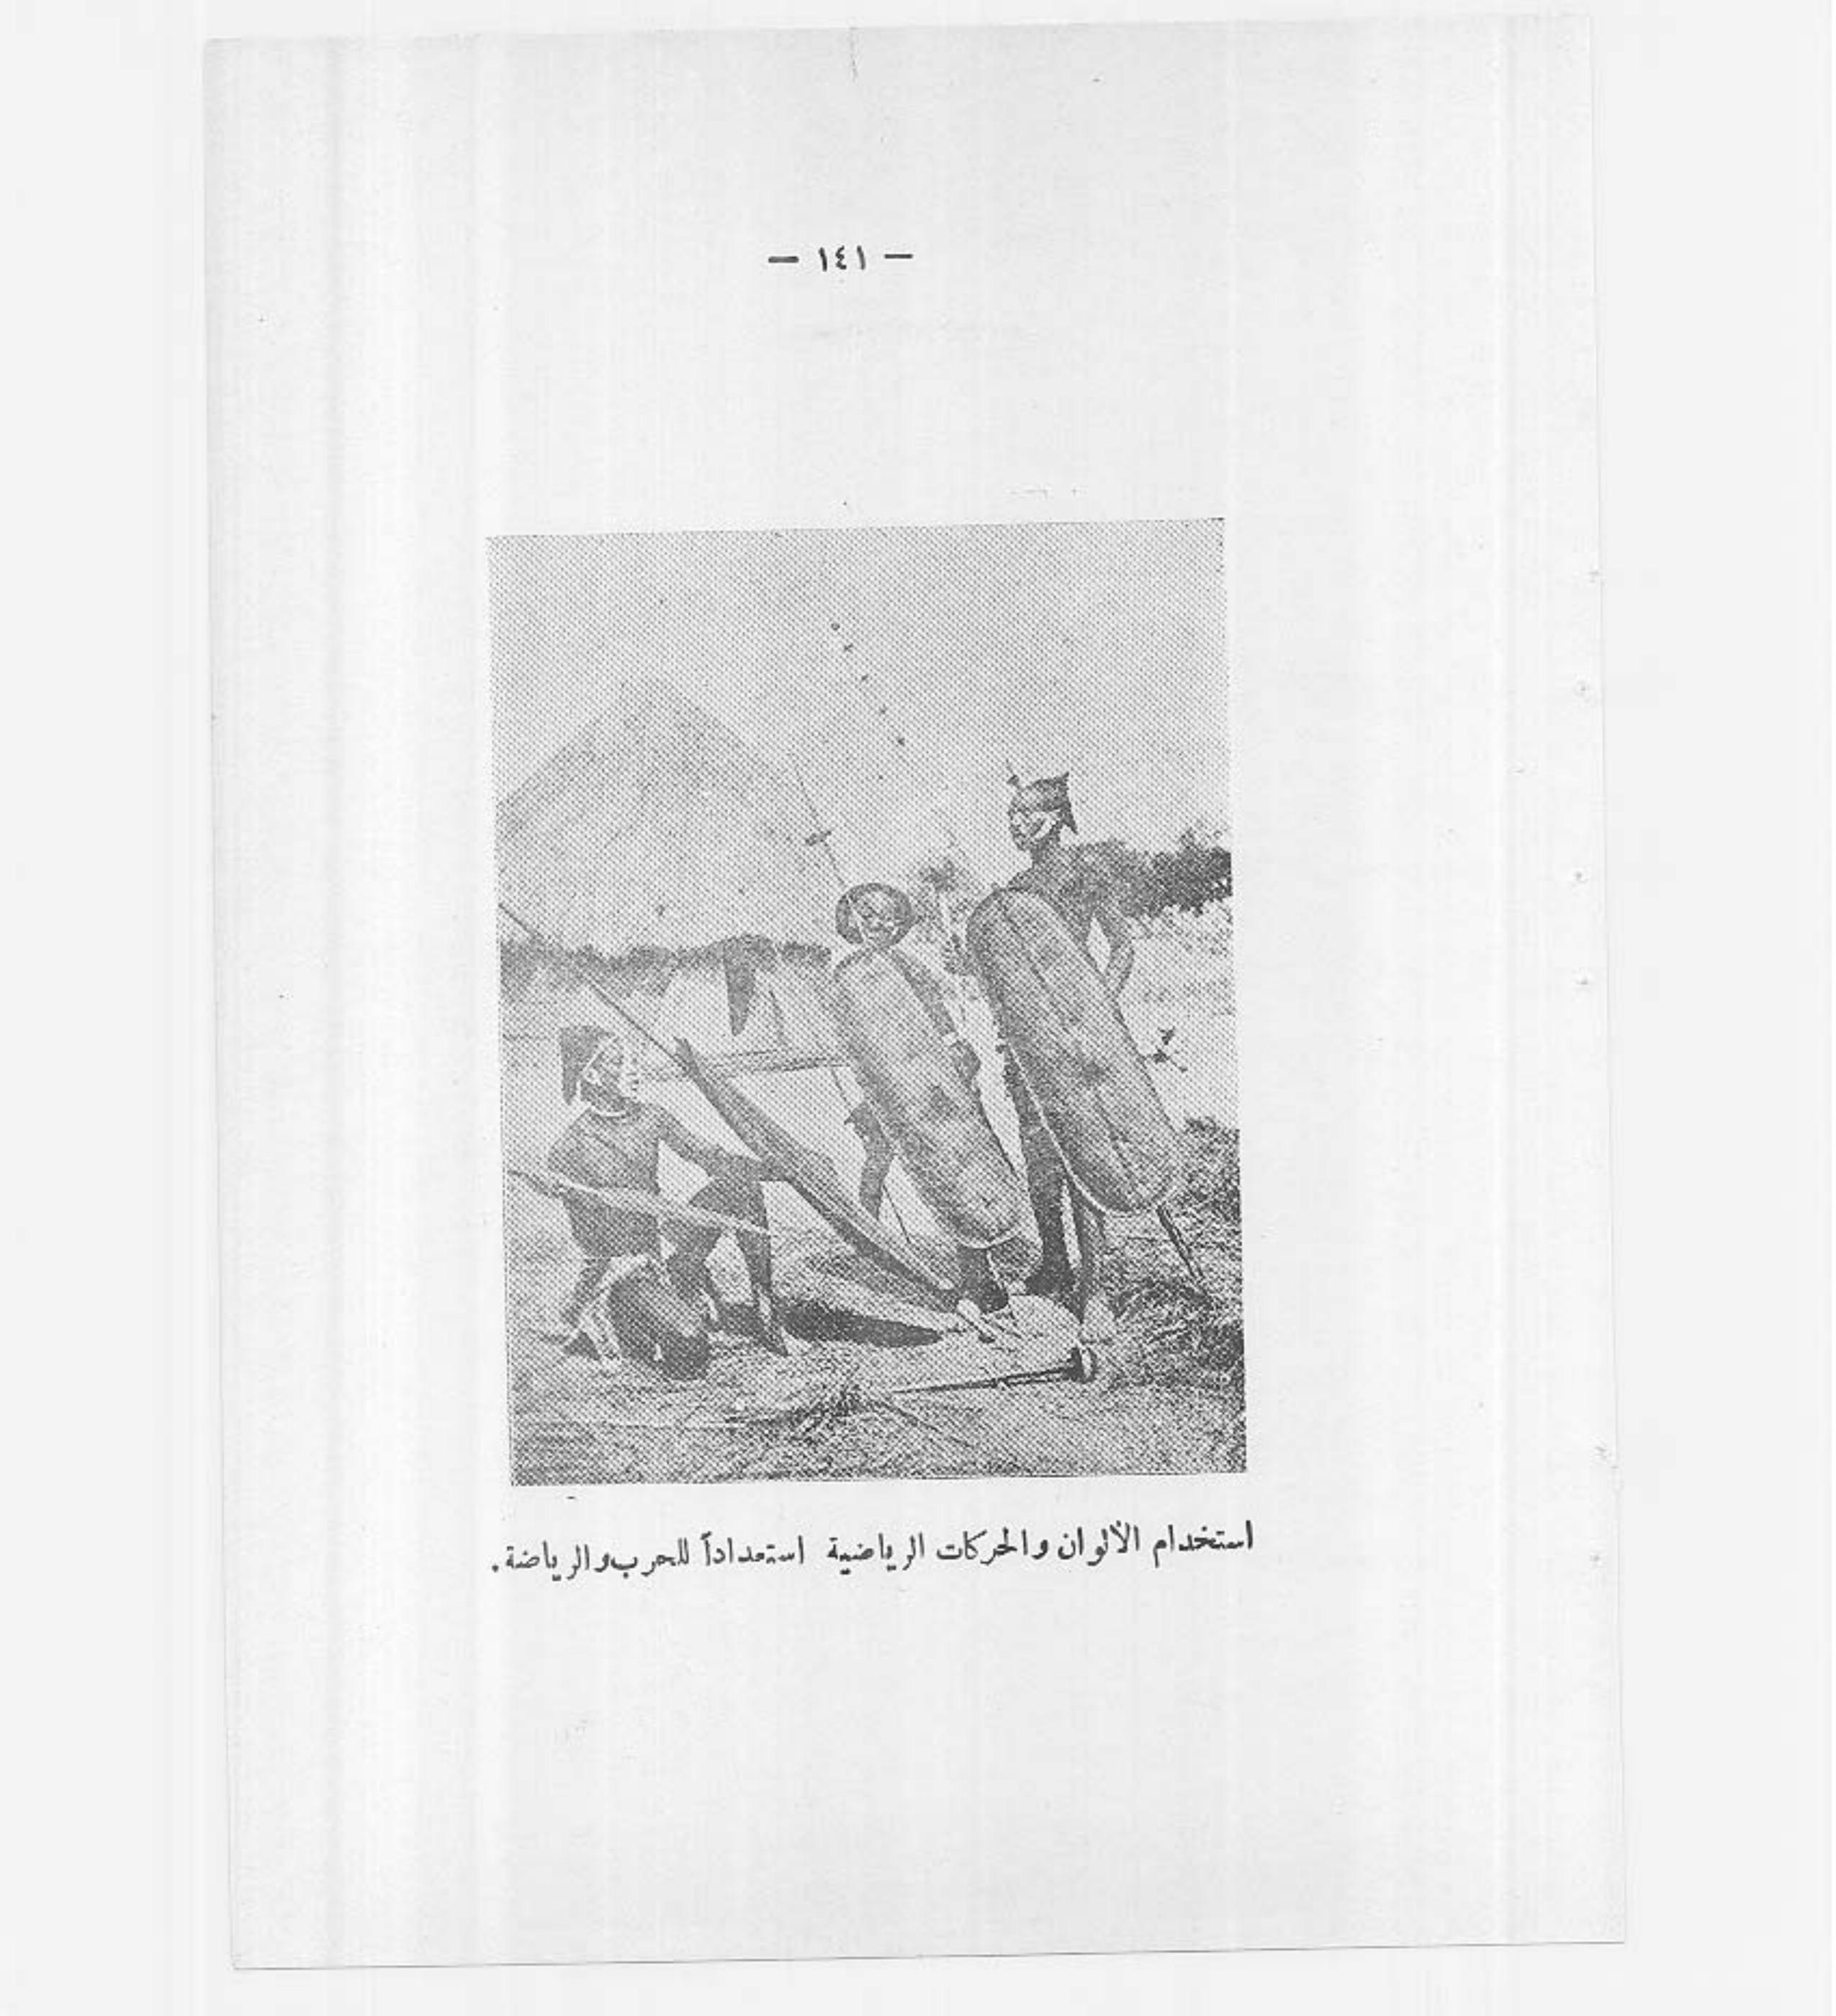 — ١٤١ —
استخدام الألوان والحركات الرياضية استعداداً للحرب والرياضة.